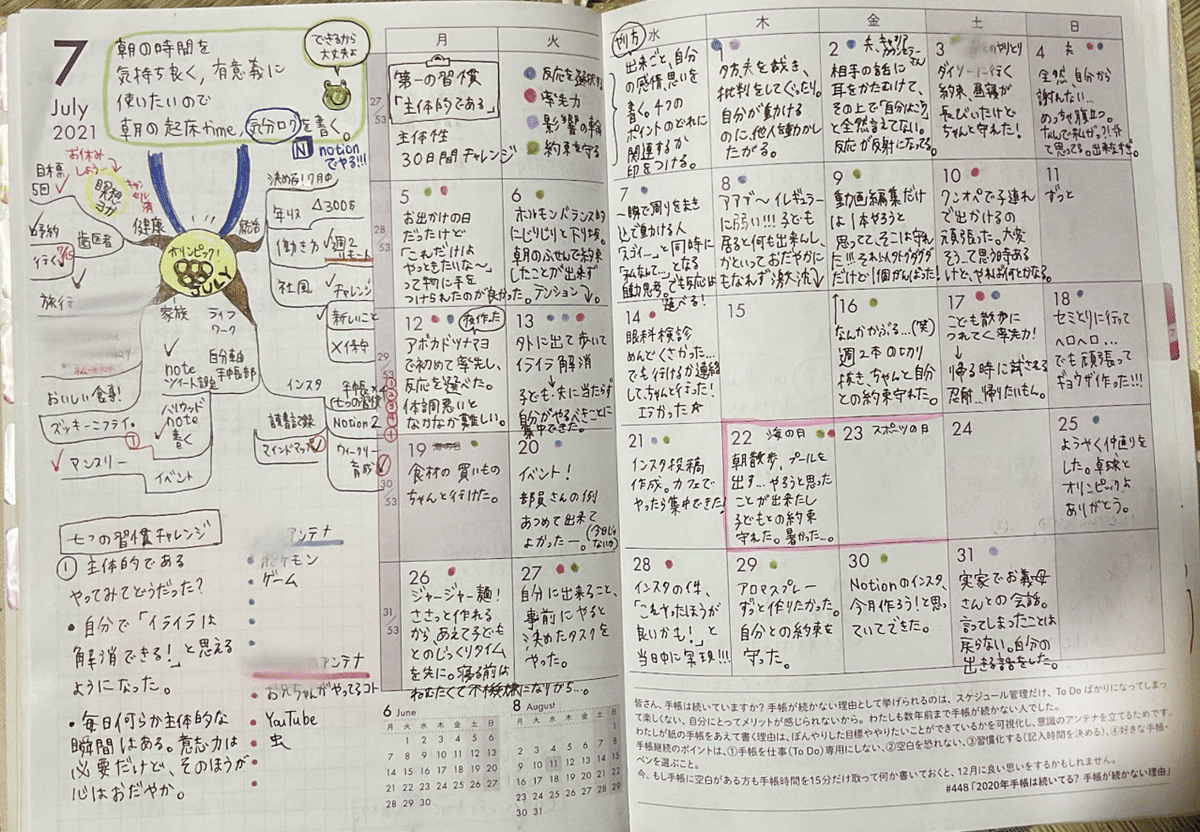 7
July
2021
朝の時間を
気持ち良く、有意義に
使いたいので
朝の起床time、気分ログを書く。
できるから
大丈夫よ
notion
でやる!!!
お休み
しよう
目標
5日
瞑想
ヨガ
健康
歯医者
予約
行く
旅行
オリンピック!
JULY
統治
決める!7月中
年収
△300万
働き方
週2
リモート
社風
チャレンジ
新しいこと
×保守
家族
ライフ
ワーク
おいしい食事!
ズッキーニフライ。
マンスリー
note
ツイート調査
ハリウッド
note
書く
自分軸
手帳部
イベント
インスタ
読書記録
マインドマップ
手帳×
七つの習慣
Notion 2
ウィークリー
育成
七つの習慣チャレンジ
① 主体的である
やってみてどうだった?
• 自分で「イライラは
解消できる!」と思える
ようになった。
• 毎日何らか主体的な
瞬間はある。意志力は
必要だけど、そのほうが
心はおだやか。
アンテナ
ポケモン
ゲーム
アンテナ
お兄ちゃんがやってるコト
YouTube
虫
月
火
水
木
金
土
日
27
53
第一の習慣
「主体的である」
主体性
30日間チャレンジ
反応を選択する
率先力
影響の輪
約束を守る
やり方
出来ごと、自分
の感情、思いを
書く。4つの
ポイントのどれに
関連するか
印をつける。
1
夕方、夫を裁き、
批判をしてぐったり。
自分が動ける
のに、他人を動かし
たがる。
2 夫、キャリア
カウンセラーさん
相手の話に
耳をかたむけて、
その上で「自分はこう」
と全然言えてない。
反応が反射になってる。
3
のやりとり
ダイソーに行く
約束、昼寝が
長びいたけど
ちゃんと守れた!
4 夫
全然、自分から
謝れない…
めっちゃ腹立つ。
なんで私が?!
て思ってる。出来なすぎ。
28
53
5
お出かけの日
だったけど
「これだけは
やっときたいな〜」
って物に手を
つけられたのが良かった。
6
ホルモンバランス的
にじりじりと下り坂。
朝のふせんで約束
したことが出来ず
テンション↓。
7
一瞬で周りをまき
込んで動ける人
「スゴイー」と同時に
「私なんて…」となる
自動思考。でも反応は
選べる!
8
アアア〜イレギュラー
に弱い!!!子ども
居ると何も出来んし、
かといっておだやかに
もなれず激沈↓
9
動画編集だけ
は1本やろうと
思ってて、そこは守れ
た!!!それ以外グダグダ
だけど1個がんばった!
10
ワンオペで子連れ
で出かけるの
頑張った。大変
そうって思う時ある
けど、やれば何とかなる。
11
ずっと
29
53
12
夜作った
アボカドツナマヨ
で初めて率先し、
反応を選べた。
体調悪いと
なかなか難しい。
13
外に出て歩いて
イライラ解消
子ども・夫に当たらず
自分がやるべきことに
集中できた。
14
眼科検診
めんどくさかった…
でも行けるか連絡
して、ちゃんと行った!
エラかった☆
15
16
なんかかぶる…(笑)
週2本のじっくり
抜き、ちゃんと自分
との約束守れた。
17
こども散歩に
つれてく率先力!
↓
帰る時に試される
忍耐…帰りたいもん。
18
セミとりに行って
ヘロヘロ…
でも頑張って
ギョウザ作った!!!
30
53
19 海の日
食材の買いもの
ちゃんと行けた。
20
イベント!
部員さんの例
あつめて出来て
よかったー。
(今日じゃ
ないか)
21
インスタ投稿
作成。カフェで
やったら集中できた!
22 海の日
朝散歩、プールを
出す…やろうと思った
ことが出来たし
子どもとの約束
守れた。暑かった…。
23 スポーツの日
24
25
ようやく仲直りを
した。卓球と
オリンピックよ
ありがとう。
31
53
26
ジャージャー麺!
ささっと作れる
から、あえて子ども
とのじっくりタイム
を先に。寝る前は
ねむたくて不機嫌になりがち…。
27
自分に出来ること、
事前にやると
決めたタスクを
やった。
28
インスタの件、
「これやったほうが
良いかも!」と
当日中に実現!!!
29
アロマスプレー
ずっと作りたかった。
自分との約束を
守った。
30
Notionのインスタ、
今月作ろう!と思っ
ていてできた。
31
実家でお義母
さんとの会話。
言ってしまったことは
戻らない。自分の
出来る話をした。
6 June
月 火 水 木 金 土 日
1 2 3 4 5 6
7 8 9 10 11 12 13
14 15 16 17 18 19 20
21 22 23 24 25 26 27
28 29 30
8 August
月 火 水 木 金 土 日
1
2 3 4 5 6 7 8
9 10 11 12 13 14 15
16 17 18 19 20 21 22
23 24 25 26 27 28 29
30 31
皆さん、手帳は続いていますか?手帳が続かない理由として挙げられるのは、スケジュール管理だけ、To Do ばかりになってしまっ
て楽しくない、自分にとってメリットが感じられないから。わたしも数年前まで手帳が続かない人でした。
わたしが紙の手帳をあえて書く理由は、ぼんやりした目標ややりたいことができているかを可視化し、意識のアンテナを立てるためです。
手帳継続のポイントは、①手帳を仕事(To Do)専用にしない、②空白を恐れない、③習慣化する(記入時間を決める)、④好きな手帳・
ペンを選ぶこと。
今、もし手帳に空白がある方も手帳時間を15分だけ取って何か書いておくと、12月に良い思いをするかもしれません。
#448「2020年手帳は続いてる? 手帳が続かない理由」